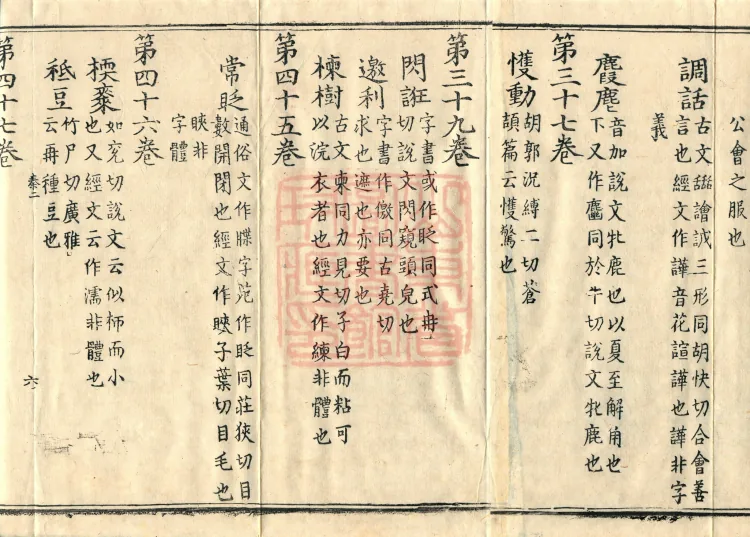 公會之服也
調話古文譮誠三形同胡快切合會善
言也經文作譁音花諠譁也譁非字
義
麚麀音加說文牡鹿也以夏至解角也
下又作同於牛切說文牝鹿也
第三十七卷
戄動胡郭況縛二切蒼
頡篇云戄驚也
第三十九卷
閃誑字書或作眨同式冉
切說文閃窺頭皃也
邀利字書作徼同古堯切
求也遮也亦要也
楝樹古文柬同力見切子白而粘可
以浣衣者也經文作練非體也
第四十五卷
常眨通俗文作字苑作眨同莊狹切目
數開閉也經文作睫子葉切目毛也
睫非
字體
第四十六卷
棗如兗切說文云似柿而小
也又經文云作濡非體也
秪豆竹尸切廣雅
云再種豆也
卷二
六
第四十七卷